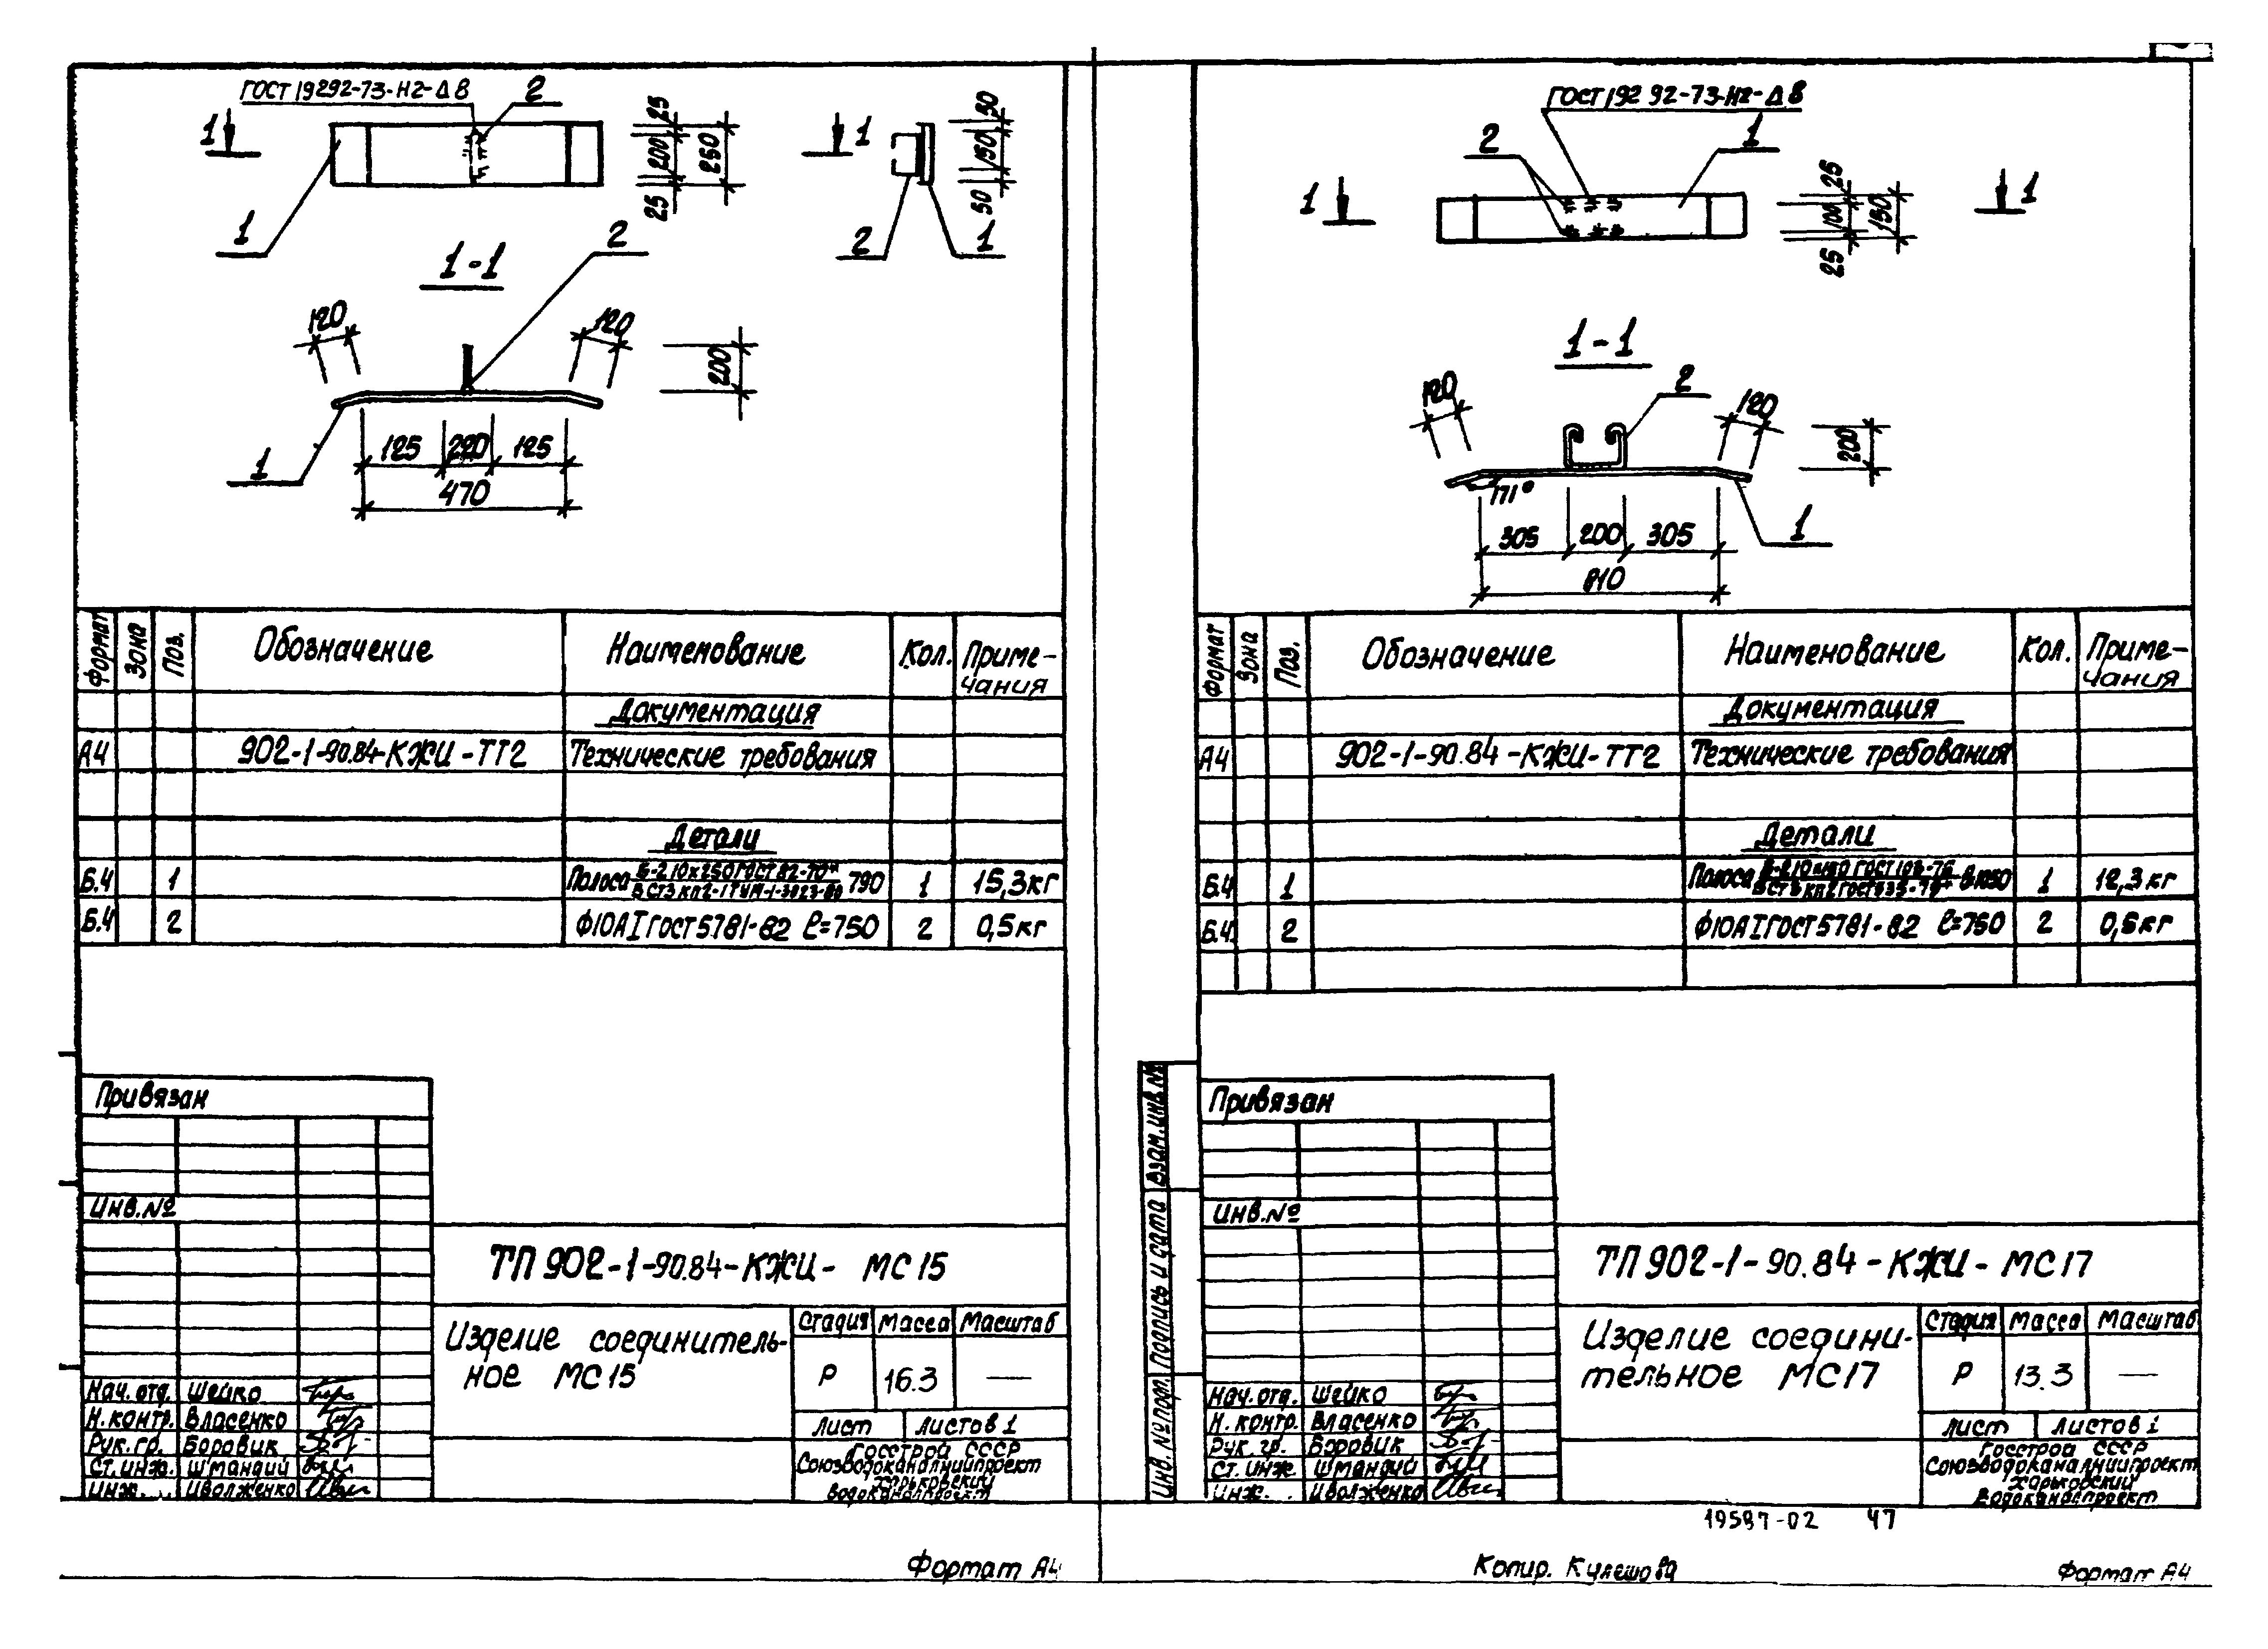 ГОСТ 19292-73-Н2-Δ8
2
1
1
25
200
250
25
50
150
50
1
2
2
1
1-1
120
120
200
1
125
220
125
470
Формат
Зона
Поз.
Обозначение
Наименование
Кол.
Приме-
чания
Документация
А4
902-1-90.84-КЖИ-ТТ2
Технические требования
Детали
Б.4
1
Полоса Б-2 10х250 ГОСТ 82-70* 790
1
15,3кг
Б.4
2
Ф10АI ГОСТ 5781-82 ℓ=750
2
0,5кг
Привязан
Инв.№
ТП 902-1-90.84-КЖИ- МС15
Изделие соединитель-
ное МС15
Стадия
Масса
Масштаб
Р
16.3
—
Лист
Листов 1
Госстрой СССР
Союзводоканалниипроект
Харьковский
Водоканалпроект
Нач. отд. Шейко
Н. контр. Власенко
Рук. гр. Боровик
Ст. инж. Шмандий
Инж. Иволженко
Формат А4
ГОСТ 19292-73-Н2-Δ8
2
1
1
1
25
100
150
25
1-1
120
2
120
200
171°
1
305
200
305
810
Формат
Зона
Поз.
Обозначение
Наименование
Кол.
Приме-
чания
Документация
А4
902-1-90.84-КЖИ-ТТ2
Технические требования
Детали
Б.4
1
Полоса ГОСТ 103-76
1
12,3кг
Б.4
2
Ф10АI ГОСТ 5781-82 ℓ=750
2
0,5кг
Взам. инв. №
Подпись и дата
Инв. № подл.
Привязан
Инв.№
ТП 902-1-90.84-КЖИ- МС17
Изделие соедини-
тельное МС17
Стадия
Масса
Масштаб
Р
13.3
—
Лист
Листов 1
Госстрой СССР
Союзводоканалниипроект
Харьковский
Водоканалпроект
Нач. отд. Шейко
Н. контр. Власенко
Рук. гр. Боровик
Ст. инж. Шмандий
Инж. Иволженко
19597-02 47
Копир. Кулешова
Формат А4